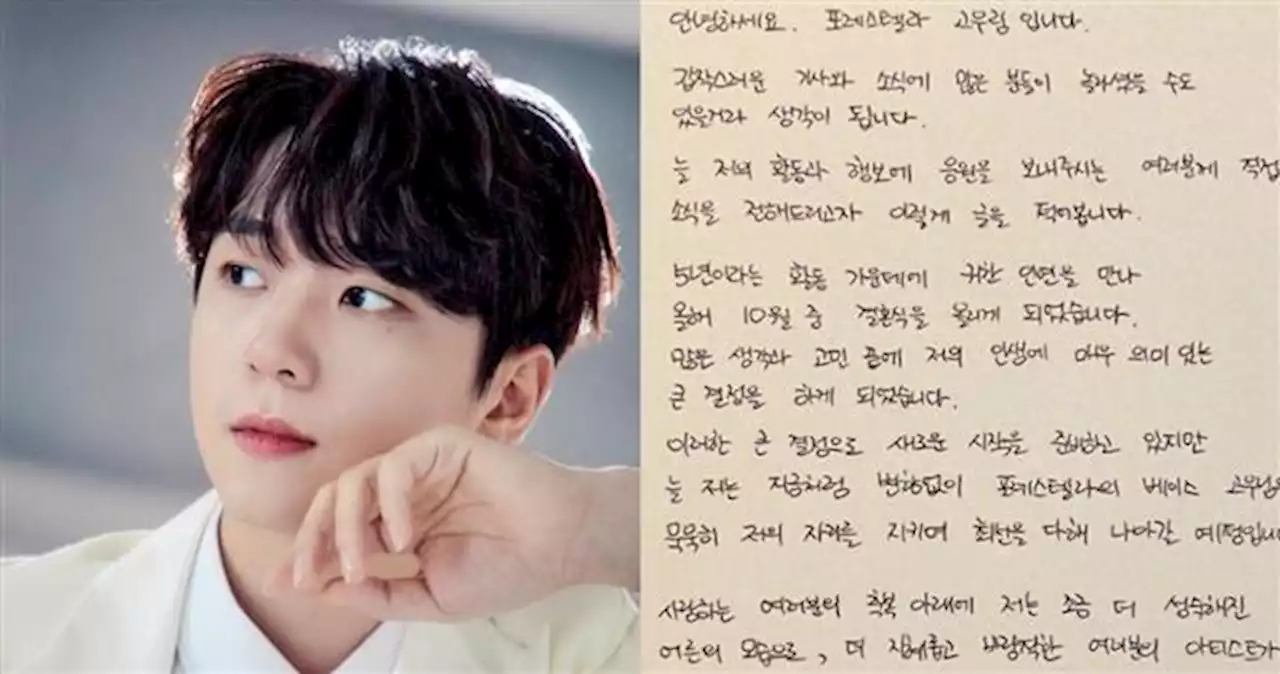 안녕하세요. 포레스텔라 고우림 입니다.
갑작스러운 기사와 소식에 많은 분들이 놀라셨을 수도
있을거라 생각이 됩니다.
늘 저의 활동과 행보에 응원을 보내주시는 여러분께 직접
소식을 전해드리고자 이렇게 글을 적어봅니다.
5년이라는 활동 가운데에 귀한 인연을 만나
올해 10월 중 결혼식을 올리게 되었습니다.
많은 생각과 고민 끝에 저의 인생에 아주 의미 있는
큰 결정을 하게 되었습니다.
이러한 큰 결정으로 새로운 시작을 준비하고 있지만
늘 저는 지금처럼 변함없이 포레스텔라의 베이스 고우림
묵묵히 저의 자리를 지키며 최선을 다해 나아갈 예정입니
사랑하는 여러분의 축복 아래에 저는 조금 더 성숙해진
어른의 모습으로, 더 지혜롭고 바람직한 여러분의 아티스트가